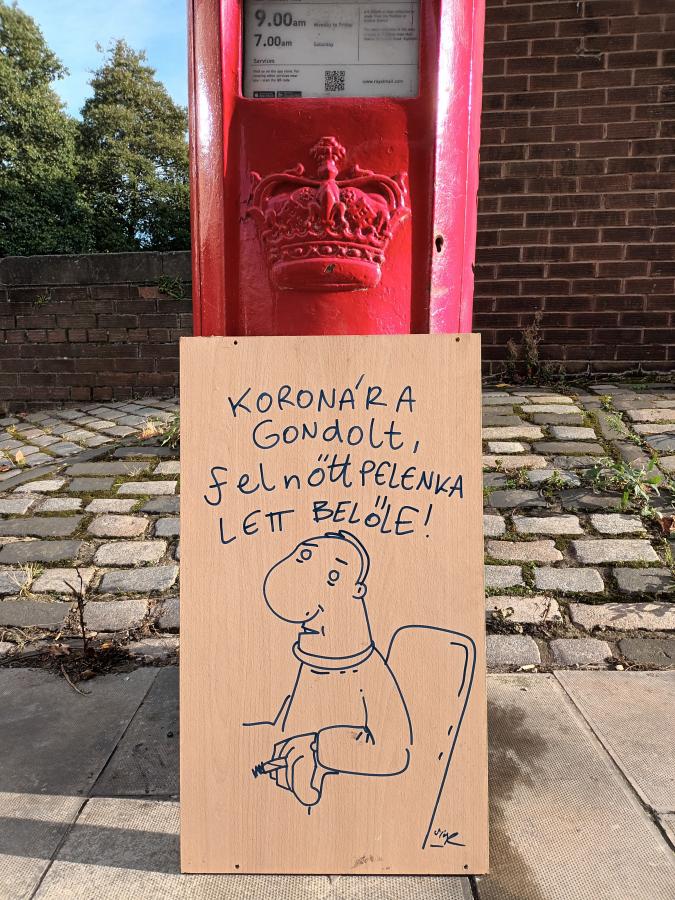 9.00am Monday to Friday
7.00am Saturday
Services
www.royalmail.com
KORONÁRA
GONDOLT,
felnőtt PELENKA
LETT BELŐLE!